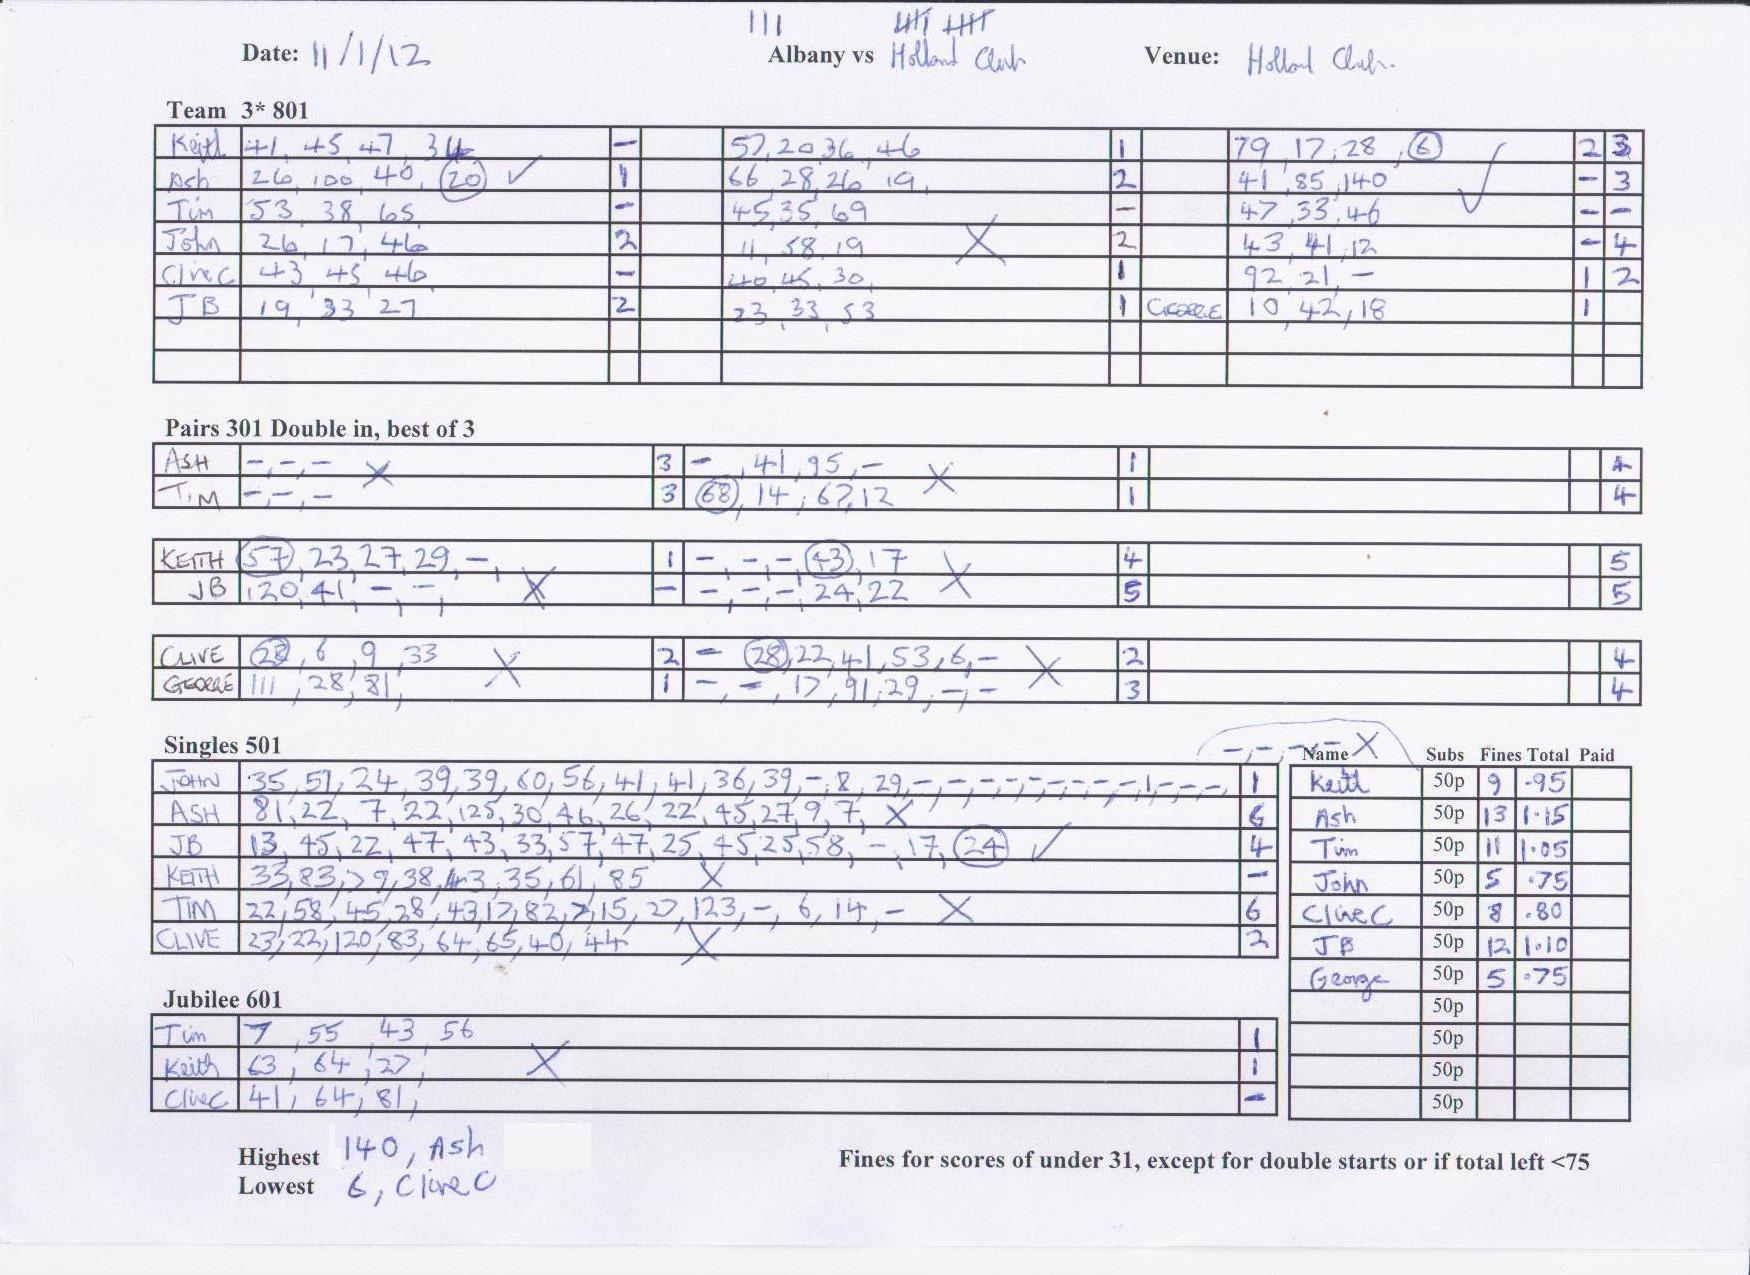 Date: 11/1/12 Albany vs Holland Club Venue: Holland Club.
Team 3* 801
Keith 41, 45, 47, 34 – 57, 20 36, 46 1 79, 17, 28, 6 2 3
Ash 26, 100, 40, 20 ✓ 1 66, 28, 26, 19, 2 41, 85, 140 ✓ – 3
Tim 53, 38, 65 – 45, 35, 69 – 47, 33, 46 – –
John 26, 17, 46 2 11, 58, 19 X 2 43, 41, 12 – 4
Clive C 43, 45, 46 – 40, 45, 30, 1 92, 21, – 1 2
JB 19, 33, 27 2 23, 33, 53 1 GEORGE 10, 42, 18 1
Pairs 301 Double in, best of 3
ASH –, –, – X 3 –, 41, 95, – X 1 4
TIM –, –, – 3 68, 14, 67, 12 1 4
KEITH 57, 23, 27, 29, –, 1 –, –, –, 43, 17 X 4 5
JB 120, 41, –, –, X – –, –, –, 24, 22 5 5
CLIVE 28, 6, 9, 33 X 2 – 28, 22, 41, 53, 6, – X 2 4
GEORGE 111, 28, 81, 1 –, –, 17, 91, 29, –, – 3 4
Singles 501
–, –, –, – X
Name Subs Fines Total Paid
JOHN 35, 51, 24, 39, 39, 60, 56, 41, 41, 36, 39, –, 8, 29, –, –, –, –, –, –, –, –, 1, –, –, –, 1
Keith 50p 9 .95
ASH 81, 22, 7, 22, 125, 30, 46, 26, 22, 45, 27, 9, 7, X 6
Ash 50p 13 1.15
JB 13, 45, 22, 47, 43, 33, 57, 47, 25, 45, 25, 58, –, 17, 24 ✓ 4
Tim 50p 11 1.05
KEITH 33, 83, 79, 38, 43, 35, 61, 85 X –
John 50p 5 .75
TIM 22, 58, 45, 28, 43, 17, 82, 7, 15, 27, 123, –, 6, 14, – X 6
Clive C 50p 8 .80
CLIVE 23, 22, 120, 83, 64, 65, 40, 44 X 2
JB 50p 12 1.10
George 50p 5 .75
50p
50p
50p
50p
Jubilee 601
Tim 7, 55, 43, 56 1
Keith 63, 64, 27, X 1
Clive C 41, 64, 81, –
Highest 140, Ash
Lowest 6, Clive C
Fines for scores of under 31, except for double starts or if total left <75